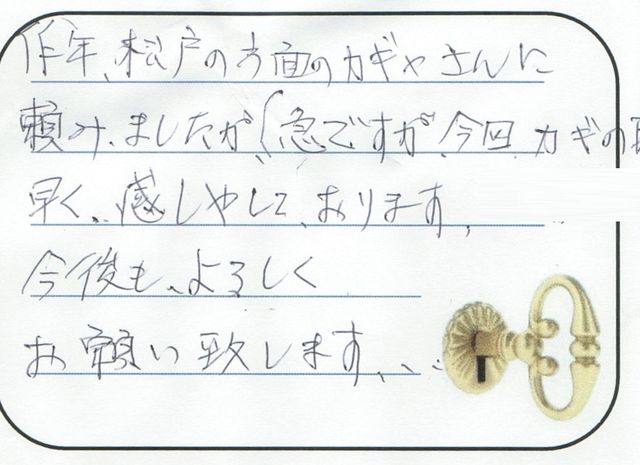 昨年、松戸の方面のカギヤさんに
頼み、ましたが、(急ですが、今回、カギの
早く、、感しゃして、おります、
今後も、よろしく
お願い致します、、